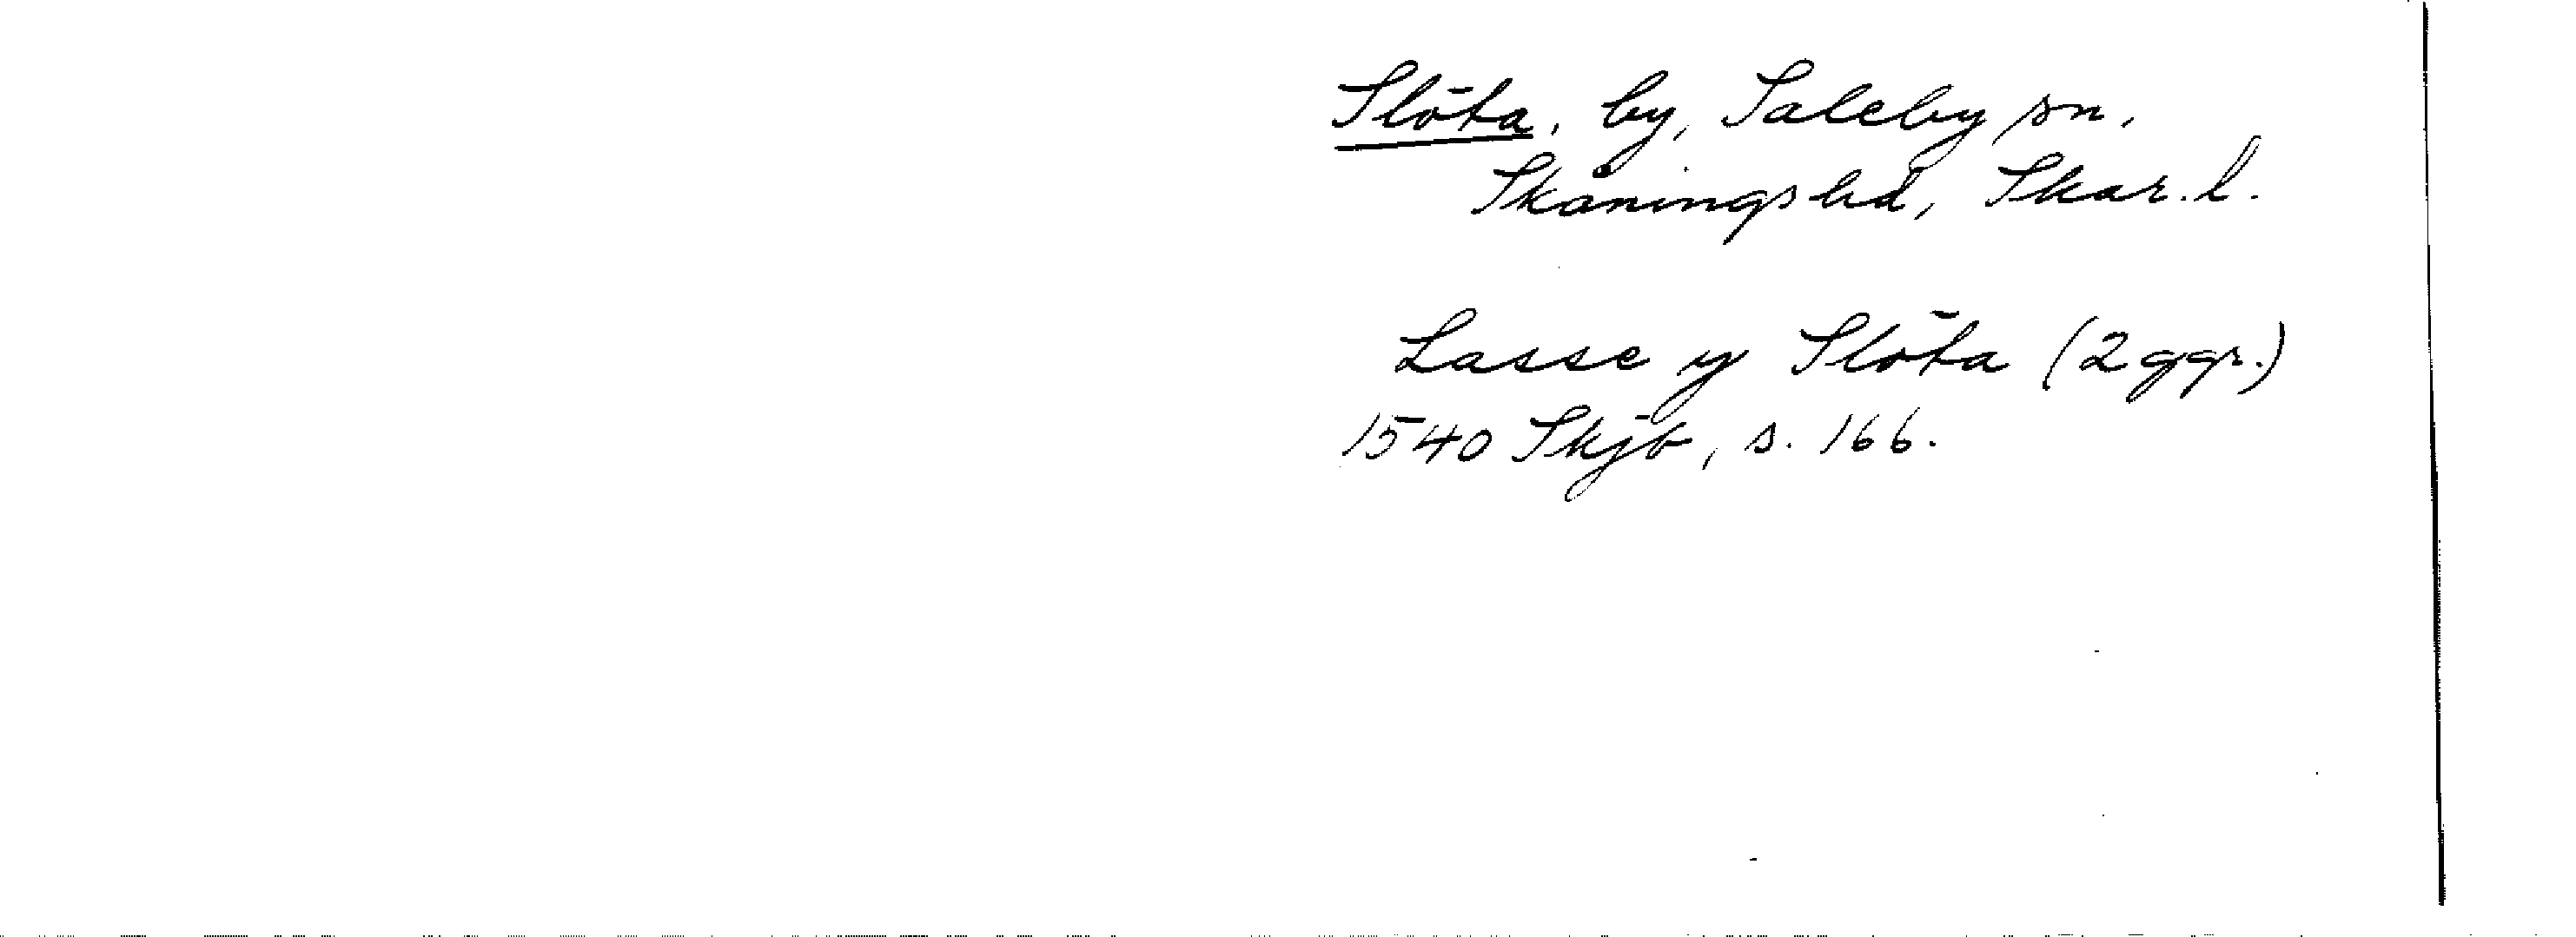 Slöta, by, Saleby sn,
Skånings hd, Skar. l.
Lasse y Slöta (2 ggr.)
1540 Skjb, s. 166.